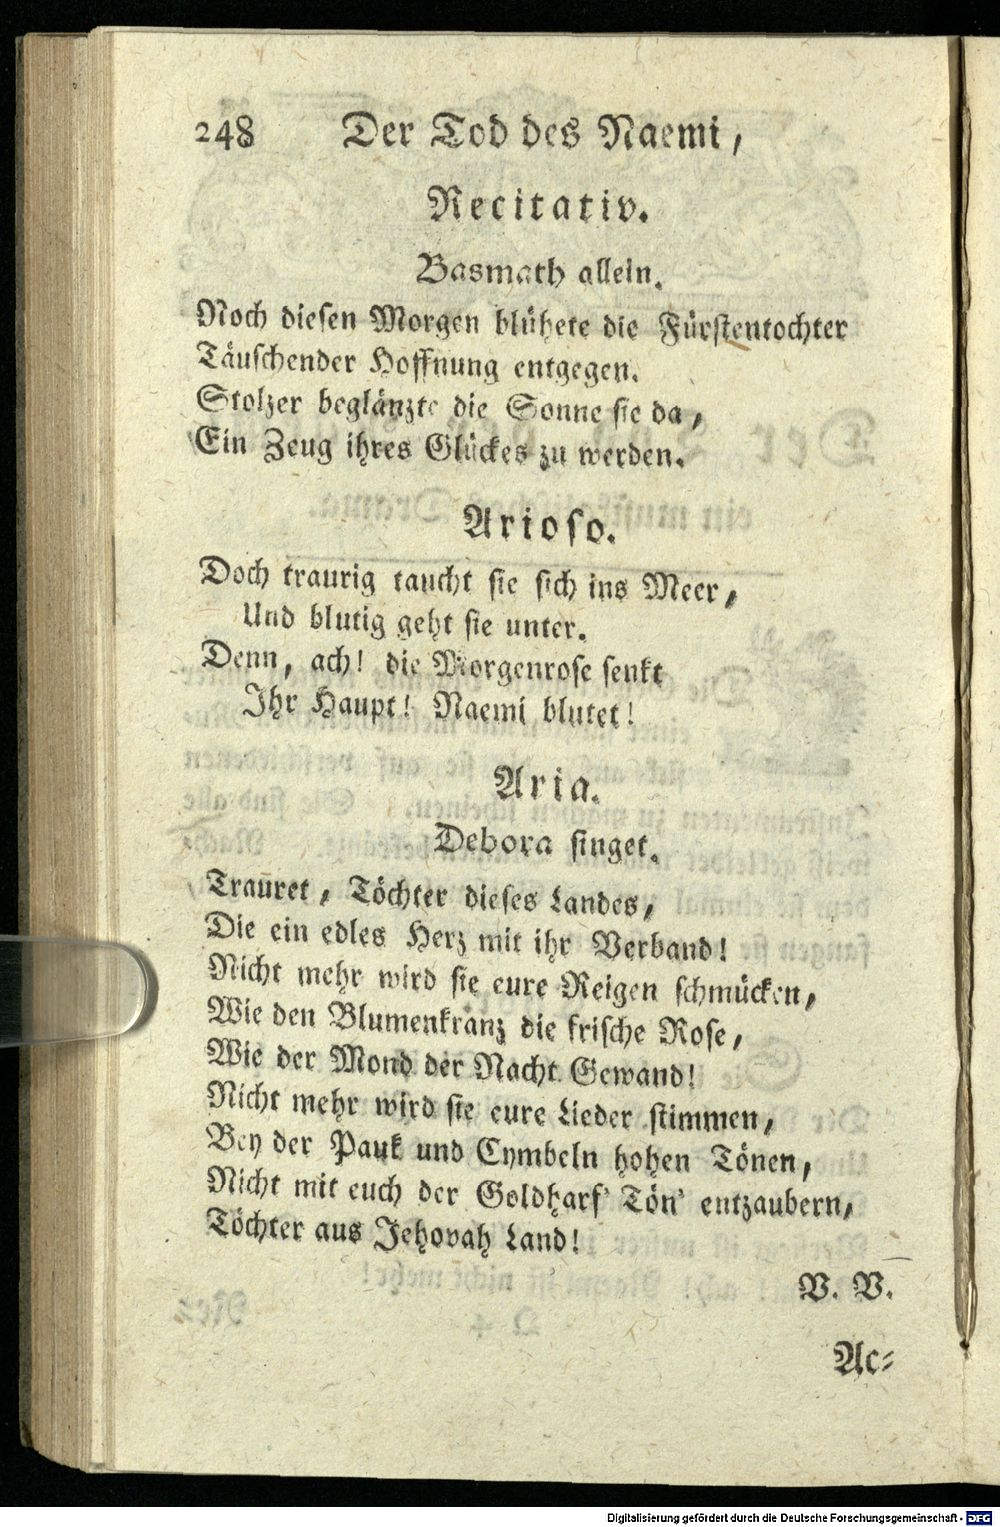 248 Der Tod des Naemi,
Recitativ.
Basmath allein.
Noch diesen Morgen blühete die Fürstentochter
Täuschender Hoffnung entgegen.
Stolzer beglänzte die Sonne sie da,
Ein Zeug ihres Glückes zu werden.
Arioso.
Doch traurig taucht sie sich ins Meer,
Und blutig geht sie unter.
Denn, ach! die Morgenrose senkt
Ihr Haupt! Naemi blutet!
Aria.
Debora singet.
Trauret, Töchter dieses Landes,
Die ein edles Herz mit ihr Verband!
Nicht mehr wird sie eure Reigen schmücken,
Wie den Blumenkranz die frische Rose,
Wie der Mond der Nacht Gewand!
Nicht mehr wird sie eure Lieder stimmen,
Bey der Pauk und Cymbeln hohen Tönen,
Nicht mit euch der Goldharf' Tön' entzaubern,
Töchter aus Jehovah Land!
V. V.
Ac-
Digitalisierung gefördert durch die Deutsche Forschungsgemeinschaft - DFG